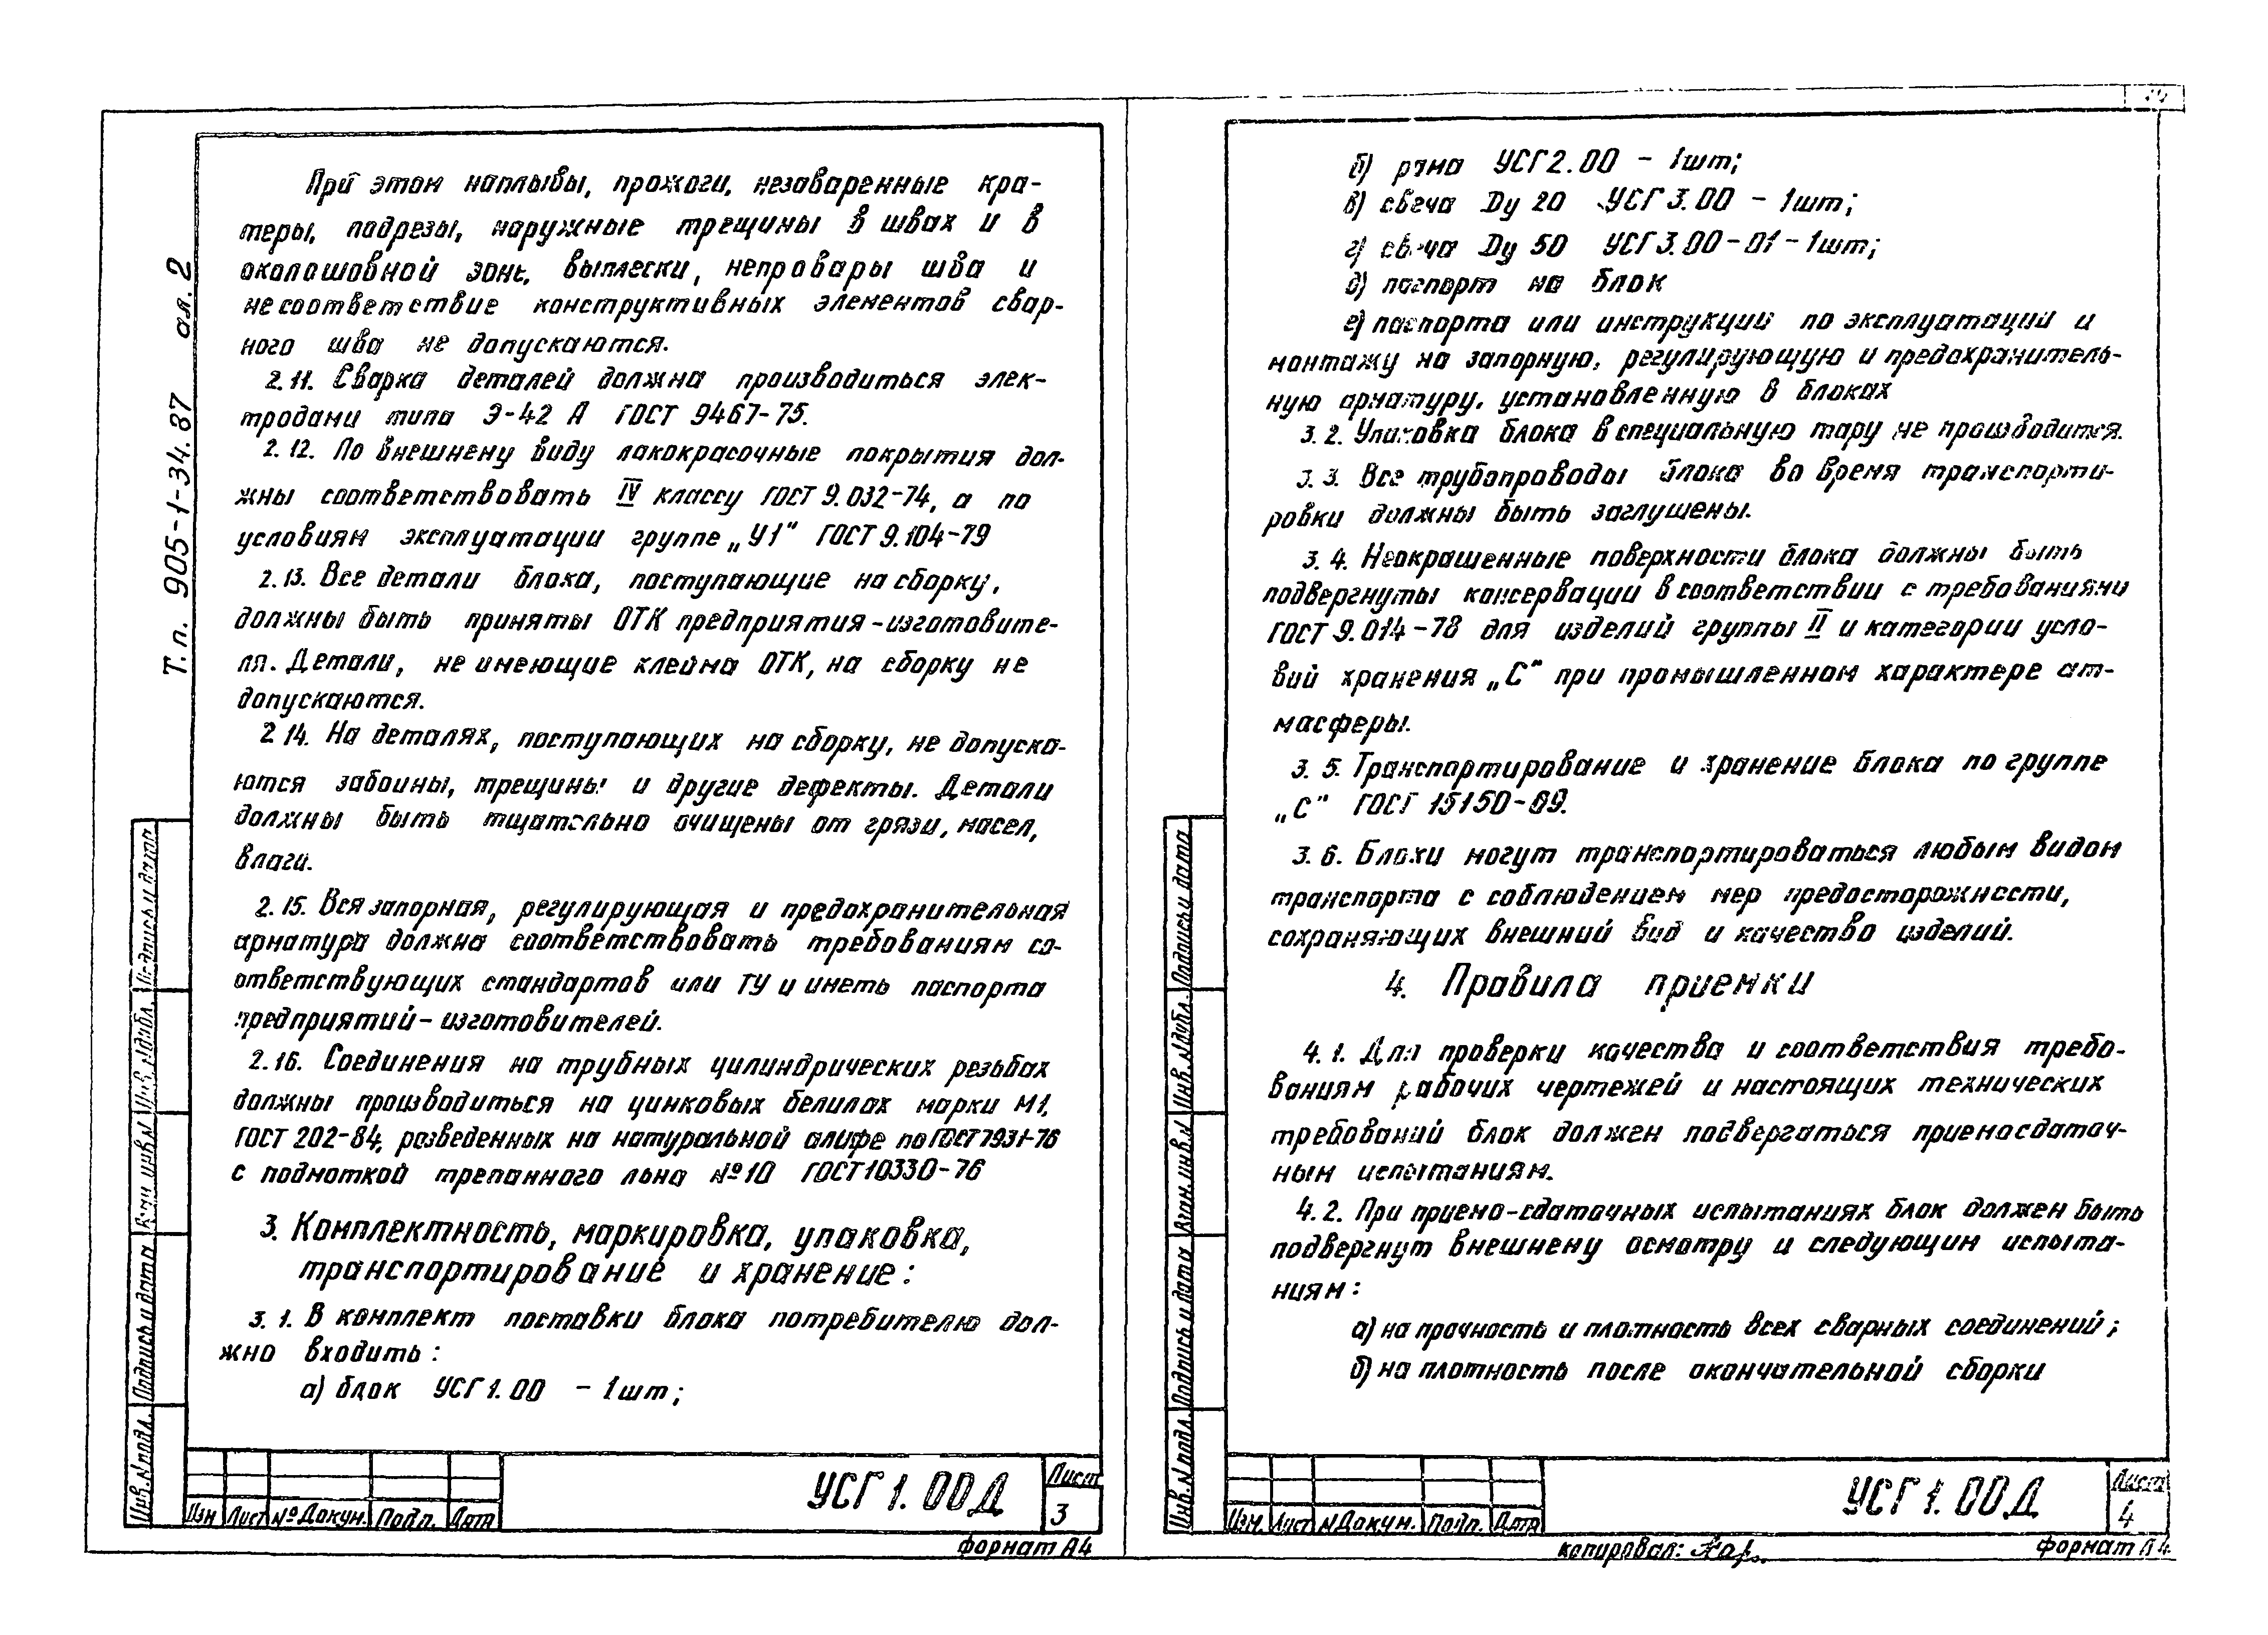 Т.п. 905-1-34.87 ал.2
При этом наплывы, прожоги, незаваренные кра-
теры, подрезы, наружные трещины в швах и в
околошовной зоне, выплески, непровары шва и
несоответствие конструктивных элементов свар-
ного шва не допускаются.
2.11. Сварка деталей должна производиться элек-
тродами типа Э-42 А ГОСТ 9467-75.
2.12. По внешнему виду лакокрасочные покрытия дол-
жны соответствовать IV классу ГОСТ 9.032-74, а по
условиям эксплуатации группе „У1“ ГОСТ 9.104-79
2.13. Все детали блока, поступающие на сборку,
должны быть приняты ОТК предприятия-изготовите-
ля. Детали, не имеющие клейма ОТК, на сборку не
допускаются.
2.14. На деталях, поступающих на сборку, не допуска-
ются забоины, трещины и другие дефекты. Детали
должны быть тщательно очищены от грязи, масел,
влаги.
2.15. Вся запорная, регулирующая и предохранительная
арматура должна соответствовать требованиям со-
ответствующих стандартов или ТУ и иметь паспорта
предприятий-изготовителей.
2.16. Соединения на трубных цилиндрических резьбах
должны производиться на цинковых белилах марки М1,
ГОСТ 202-84, разведенных на натуральной олифе по ГОСТ 7931-76
с подмоткой трепанного льна №10 ГОСТ 10330-76
3. Комплектность, маркировка, упаковка,
транспортирование и хранение:
3.1. В комплект поставки блока потребителю дол-
жно входить:
а) блок УСГ 1.00 - 1шт;
Инв.N подл. Подпись и дата Взам инв.N Инв.N дубл. Подпись и дата
Изм Лист №Докум. Подп. Дата
УСГ 1.00 Д
Лист
3
формат А4
б) рама УСГ 2.00 - 1шт;
в) свеча Dу 20 УСГ 3.00 - 1шт;
г) свеча Dу 50 УСГ 3.00-01-1шт;
д) паспорт на блок
е) паспорта или инструкции по эксплуатации и
монтажу на запорную, регулирующую и предохранитель-
ную арматуру, установленную в блоках
3.2. Упаковка блока в специальную тару не производится.
3.3. Все трубопроводы блока во время транспорти-
ровки должны быть заглушены.
3.4. Неокрашенные поверхности блока должны быть
подвергнуты консервации в соответствии с требованиями
ГОСТ 9.014-78 для изделий группы II и категории усло-
вий хранения „С“ при промышленном характере ат-
масферы.
3.5. Транспортирование и хранение блока по группе
„С“ ГОСТ 15150-69.
3.6. Блоки могут транспортироваться любым видом
транспорта с соблюдением мер предосторожности,
сохраняющих внешний вид и качество изделий.
4. Правила приемки
4.1. Для проверки качества и соответствия требо-
ваниям рабочих чертежей и настоящих технических
требований блок должен подвергаться приемосдаточ-
ным испытаниям.
4.2. При приемо-сдаточных испытаниях блок должен быть
подвергнут внешнему осмотру и следующим испыта-
ниям:
а) на прочность и плотность всех сварных соединений;
б) на плотность после окончательной сборки
Инв.N подл. Подпись и дата Взам.инв.N Инв.N дубл. Подпись и дата
Изм. Лист N Докум. Подп. Дата
УСГ 1.00 Д
Лист
4
копировал:
формат А4